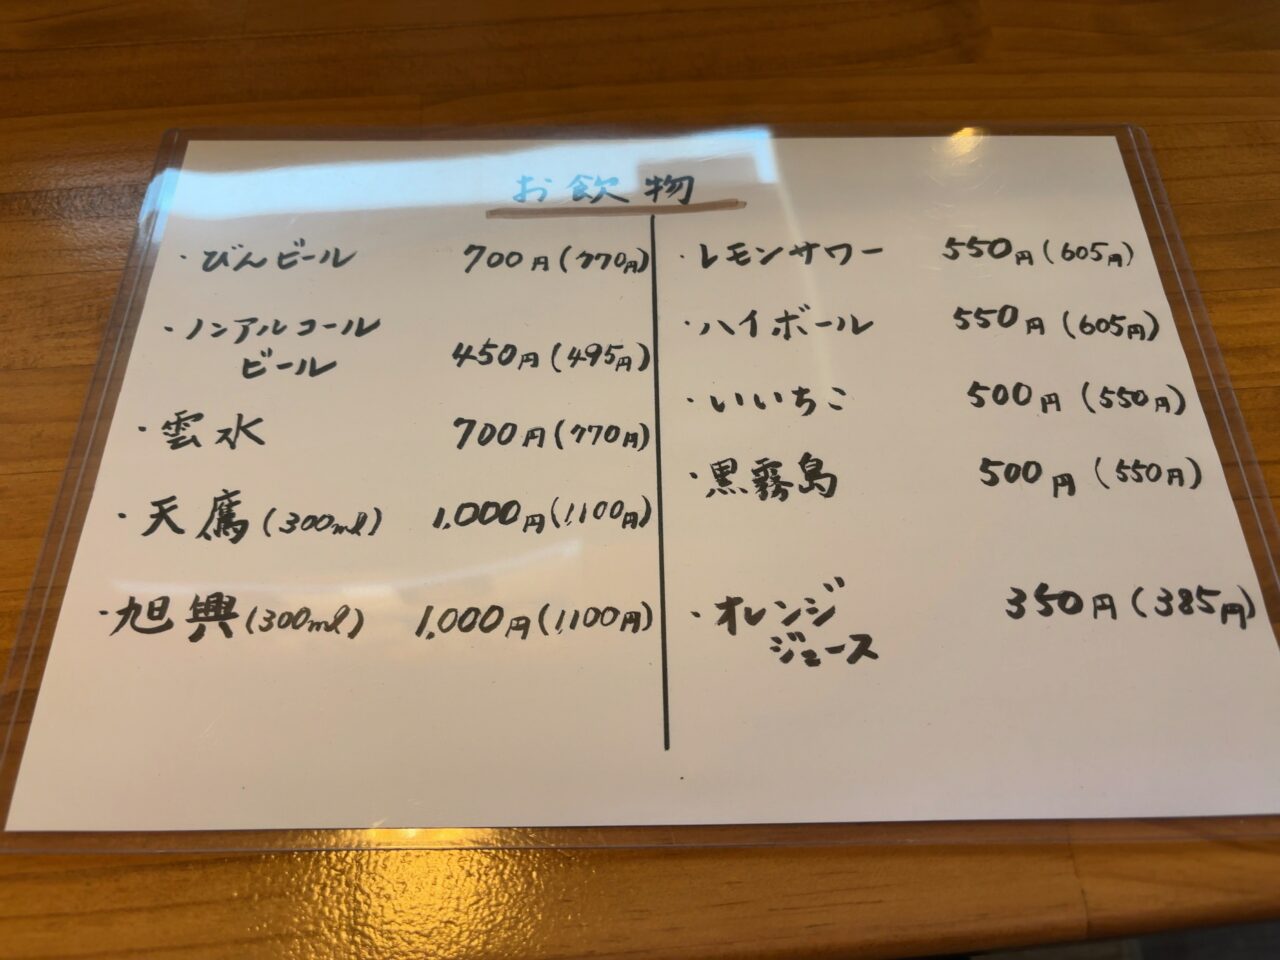 お飲物
・びんビール 700円(770円)
・ノンアルコール
ビール 450円(495円)
・雲水 700円(770円)
・天鷹(300ml) 1,000円(1,100円)
・旭興(300ml) 1,000円(1,100円)
・レモンサワー 550円(605円)
・ハイボール 550円(605円)
・いいちこ 500円(550円)
・黒霧島 500円(550円)
・オレンジ 350円(385円)
ジュース